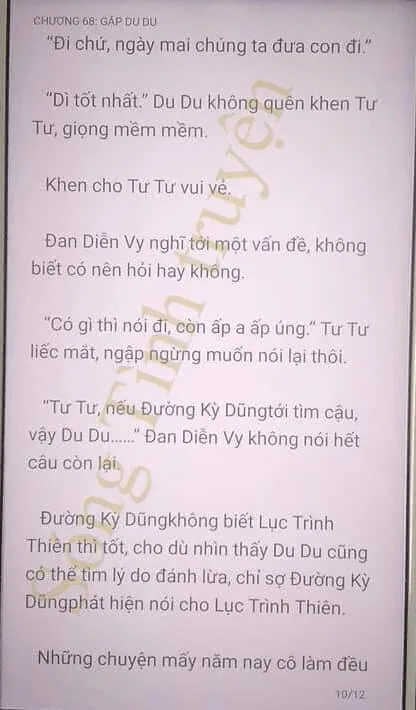 CHƯƠNG 68: GẶP DU DU
"Đi chứ, ngày mai chúng ta đưa con đi."
"Dì tốt nhất." Du Du không quên khen Tư
Tư, giọng mềm mềm.
Khen cho Tư Tư vui vẻ.
Đan Diễn Vy nghĩ tới một vấn đề, không
biết có nên hỏi hay không.
"Có gì thì nói đi, còn ấp a ấp úng." Tư Tư
liếc mắt, ngập ngừng muốn nói lại thôi.
"Tư Tư, nếu Đường Kỳ Dũngtới tìm cậu,
vậy Du Du......" Đan Diễn Vy không nói hết
câu còn lại.
Đường Kỳ Dũngkhông biết Lục Trình
Thiên thì tốt, cho dù nhìn thấy Du Du cũng
có thể tìm lý do đánh lừa, chỉ sợ Đường Kỳ
Dũngphát hiện nói cho Lục Trình Thiên.
Những chuyện mấy năm nay cô làm đều
10/12
Sóng Tình truyện